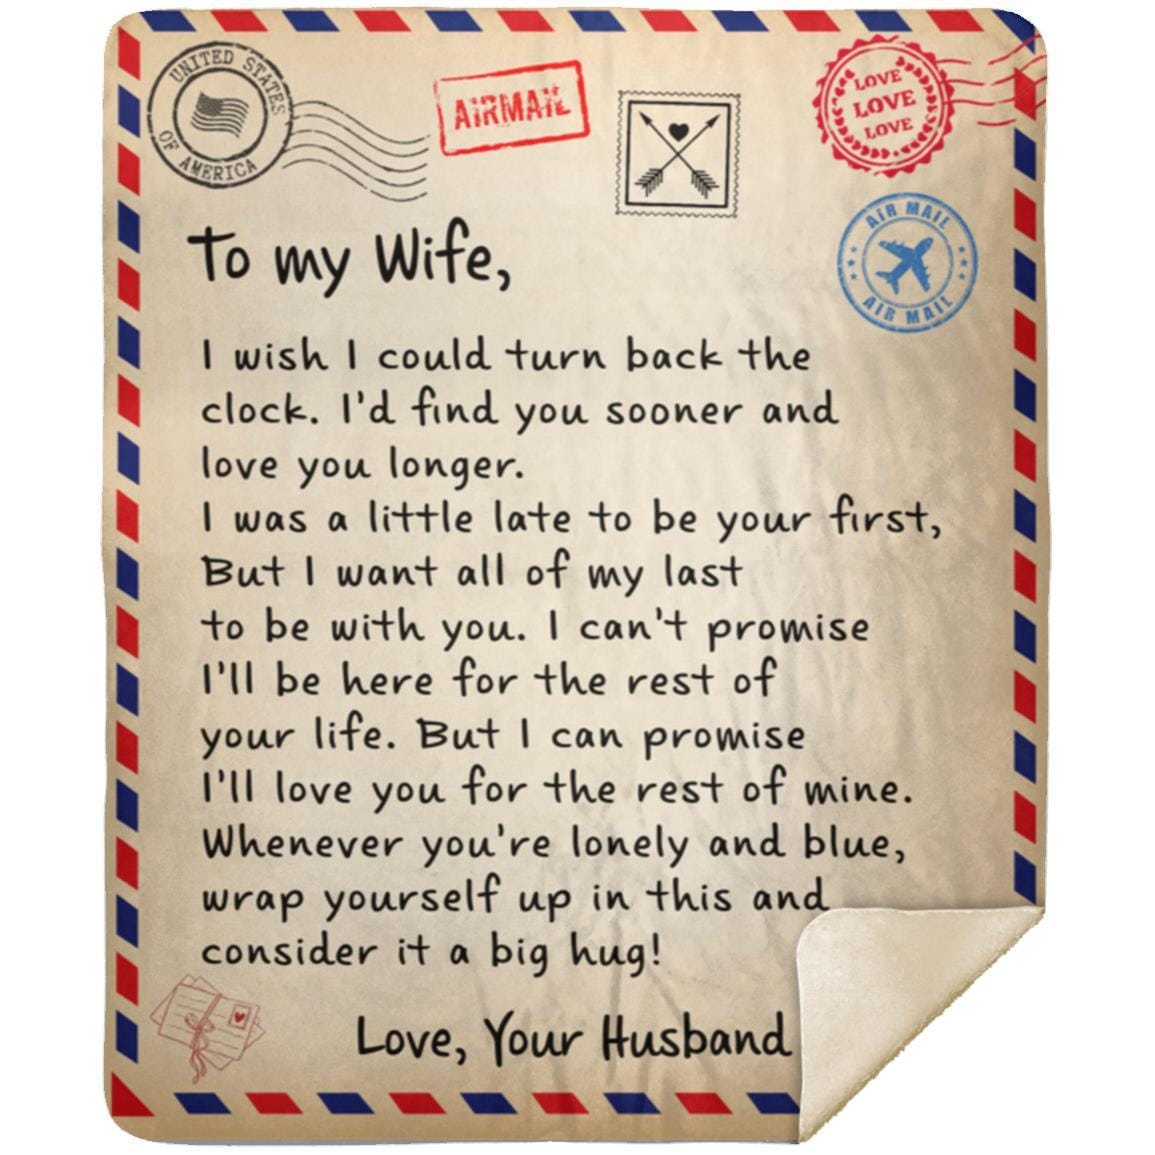 UNITED STATES
OF AMERICA
AIRMAIL
LOVE
LOVE
LOVE
AIR MAIL
AIR MAIL
To my Wife,
I wish I could turn back the
clock. I'd find you sooner and
love you longer.
I was a little late to be your first,
But I want all of my last
to be with you. I can't promise
I'll be here for the rest of
your life. But I can promise
I'll love you for the rest of mine.
Whenever you're lonely and blue,
wrap yourself up in this and
consider it a big hug!
Love, Your Husband